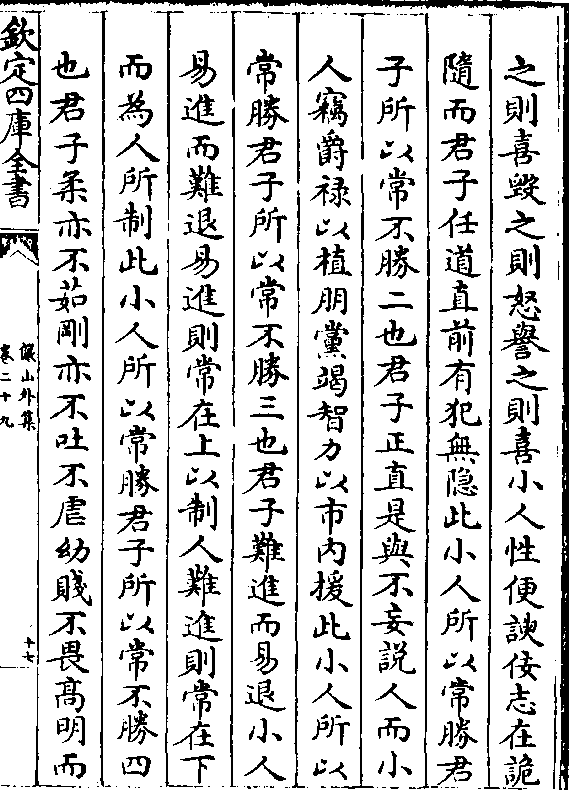 之則喜毀之則怒譽之則喜小人性便諛佞志在詭
隨而君子任道直前有犯無隐此小人所以常勝君
子所以常不勝二也君子正直是與不妄説人而小
人竊爵禄以植朋黨竭智力以市内援此小人所以
常勝君子所以常不勝三也君子難進而易退小人
易進而難退易進則常在上以制人難進則常在下
而為人所制此小人所以常勝君子所以常不勝四
也君子柔亦不茹剛亦不吐不虐幼賤不畏髙明而
欽定四庫全書
儼山外集
卷二十九
十七